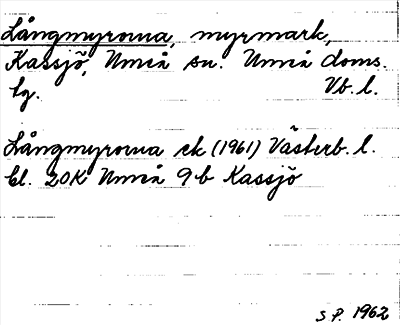 Långmyrorna, myrmark,
Kassjö, Umeå sn. Umeå doms.
tg. Vb. l.
Långmyrorna ek (1961) Västerb. l.
bl. 20K Umeå 9b Kassjö
S P. 1962